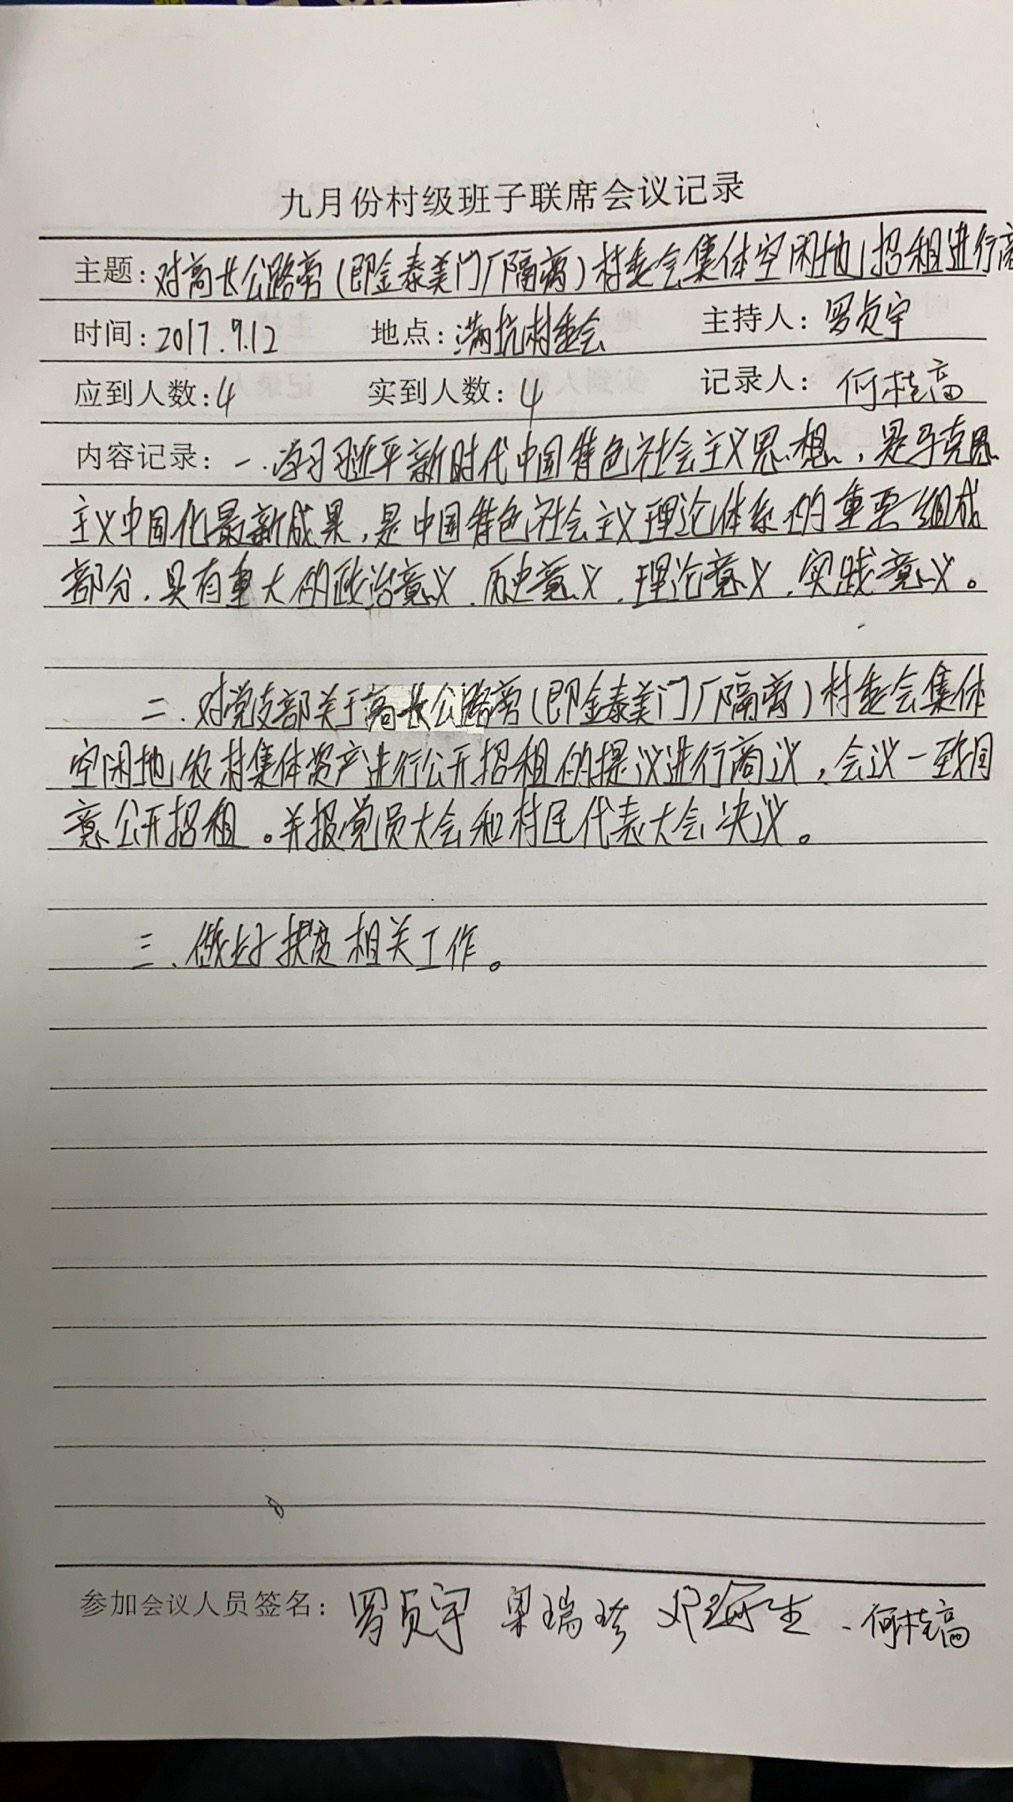 九月份村级班子联席会议记录
主题:对高长公路旁(即金泰美门厂隔离)村委会集体空闲地招租进行商
时间:2017.9.12 地点:满坑村委会 主持人:罗贞宇
应到人数:4 实到人数:4 记录人:何桂高
内容记录:一.学习习近平新时代中国特色社会主义思想,是马克思
主义中国化最新成果,是中国特色社会主义理论体系的重要组成
部分.具有重大的政治意义.历史意义.理论意义.实践意义。
二.对党支部关于高长公路旁(即金泰美门厂隔离)村委会集体
空闲地农村集体资产进行公开招租的提议进行商议,会议一致同
意公开招租。并报党员大会和村民代表大会决议。
三.做好扶贫相关工作。
参加会议人员签名:罗贞宇 梁瑞珍 邓海生.何桂高